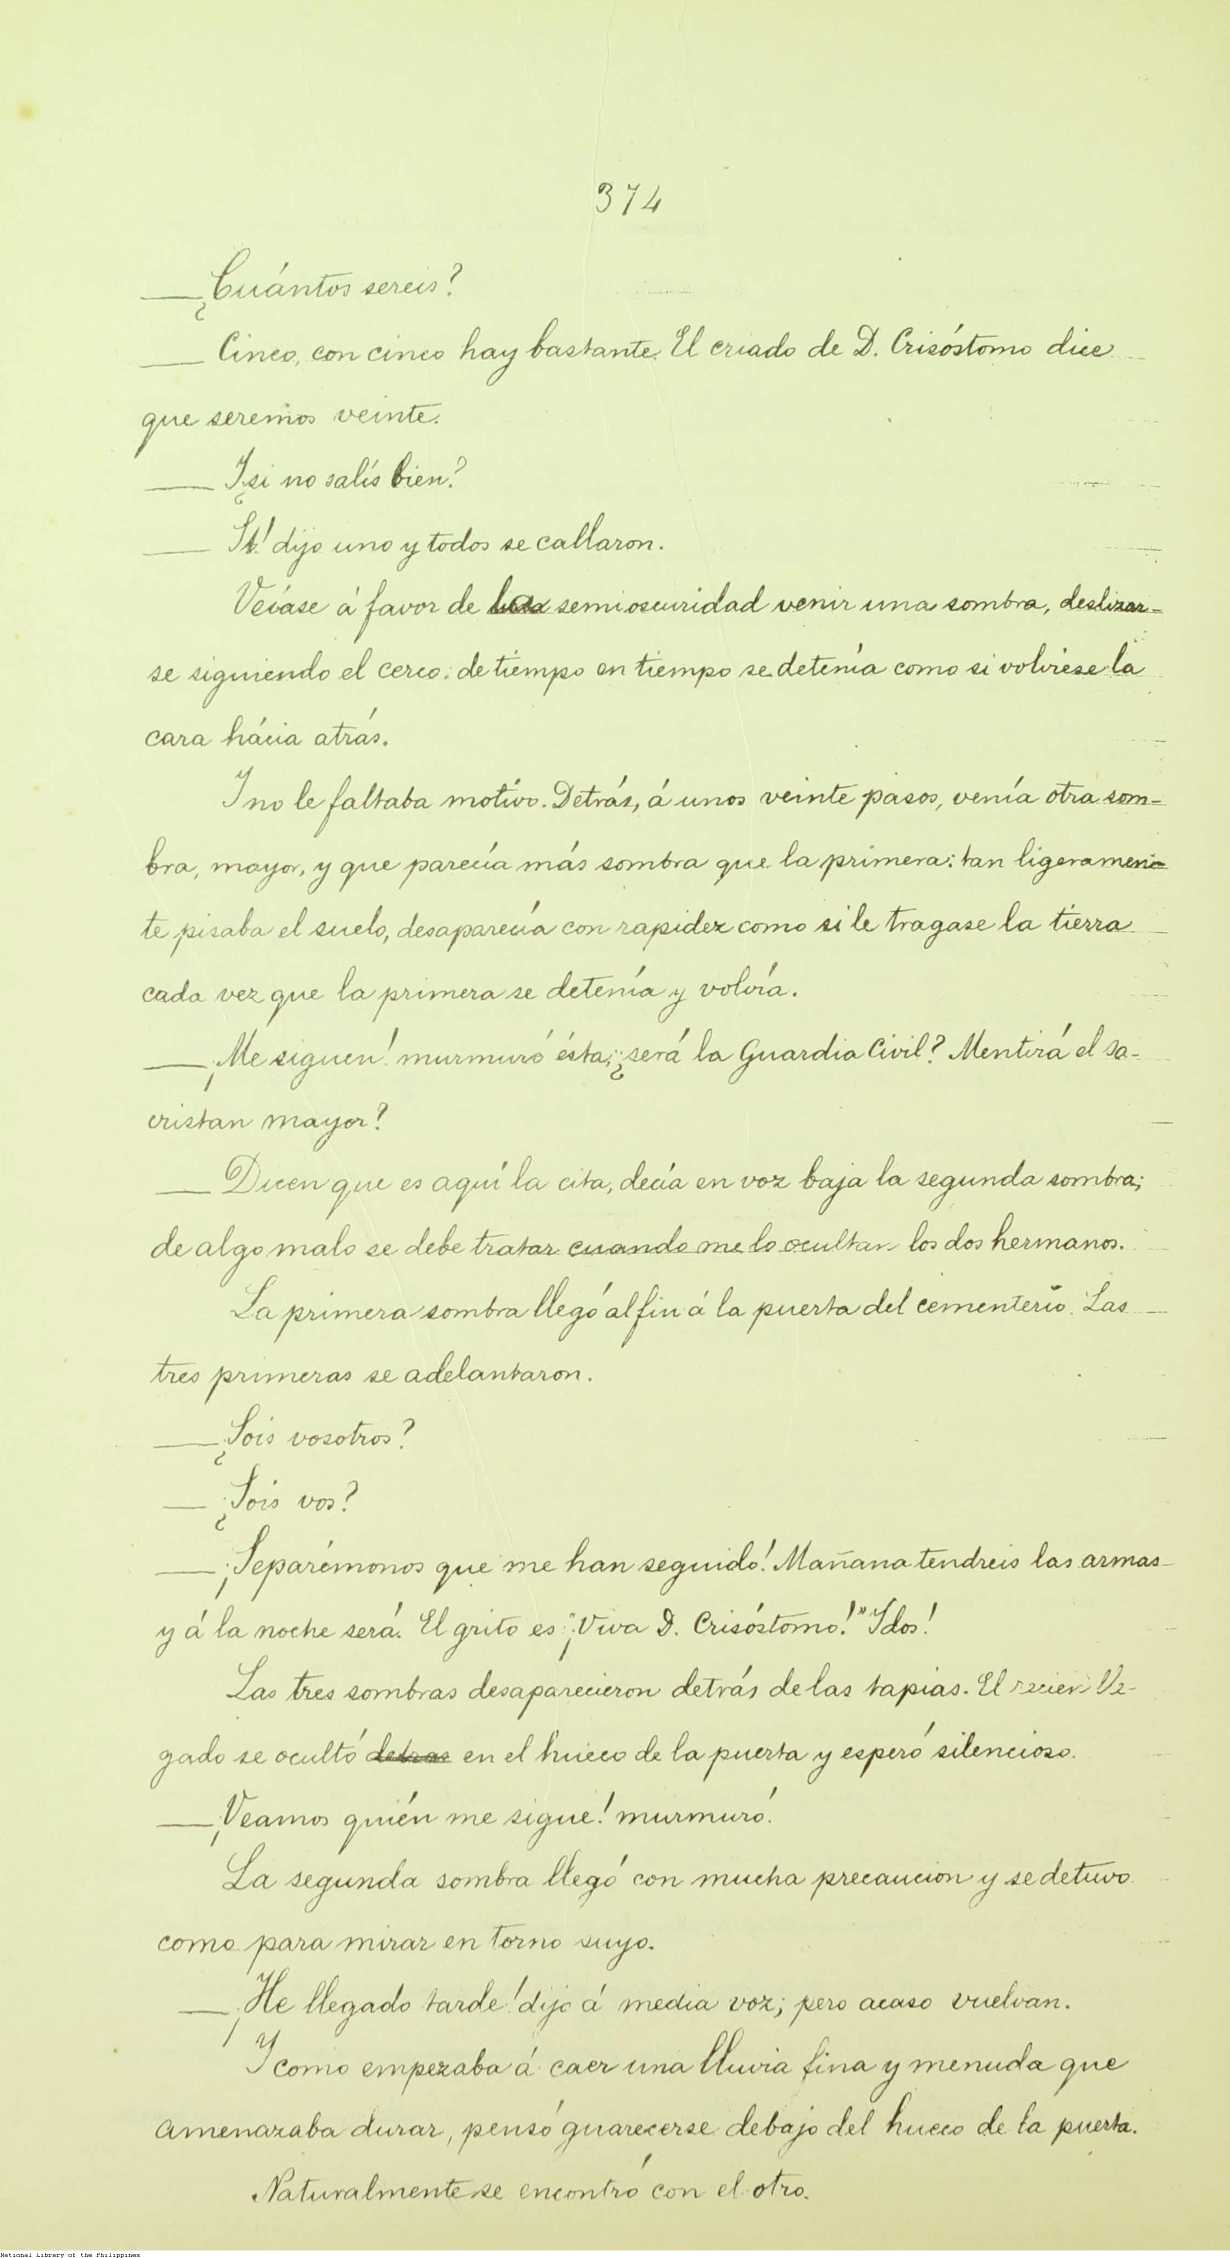 374
— ¿Cuántos sereis?
— Cinco, con cinco hay bastante. El criado de D. Crisóstomo dice
que seremos veinte.
— Y ¿si no salís bien?
— St! dijo uno y todos se callaron.
Veíase á favor de la semioscuridad venir una sombra, deslizar-
se siguiendo el cerco: de tiempo en tiempo se detenía como si volviese la
cara hácia atrás.
Y no le faltaba motivo. Detrás, á unos veinte pasos, venía otra som-
bra, mayor, y que parecía más sombra que la primera: tan ligeramen-
te pisaba el suelo, desaparecía con rapidez como si le tragase la tierra
cada vez que la primera se detenía y volvía.
— ¡Me siguen! murmuró ésta; ¿será la Guardia Civil? Mentirá el sa-
cristan mayor?
— Dicen que es aquí la cita, decía en voz baja la segunda sombra;
de algo malo se debe tratar cuando me lo ocultan los dos hermanos.
La primera sombra llegó al fin á la puerta del cementerio. Las
tres primeras se adelantaron.
— ¿Sois vosotros?
— ¿Sois vos?
— ¡Separémonos que me han seguido! Mañana tendreis las armas
y á la noche será. El grito es: "¡Viva D. Crisóstomo!" Idos!
Las tres sombras desaparecieron detrás de las tapias. El recien lle-
gado se ocultó detras en el hueco de la puerta y esperó silencioso.
— ¡Veamos quién me sigue! murmuró.
La segunda sombra llegó con mucha precaucion y se detuvo
como para mirar en torno suyo.
— ¡He llegado tarde! dijo á media voz; pero acaso vuelvan.
Y como empezaba á caer una lluvia fina y menuda que
amenazaba durar, pensó guarecerse debajo del hueco de la puerta.
Naturalmente se encontró con el otro.
National Library of the Philippines